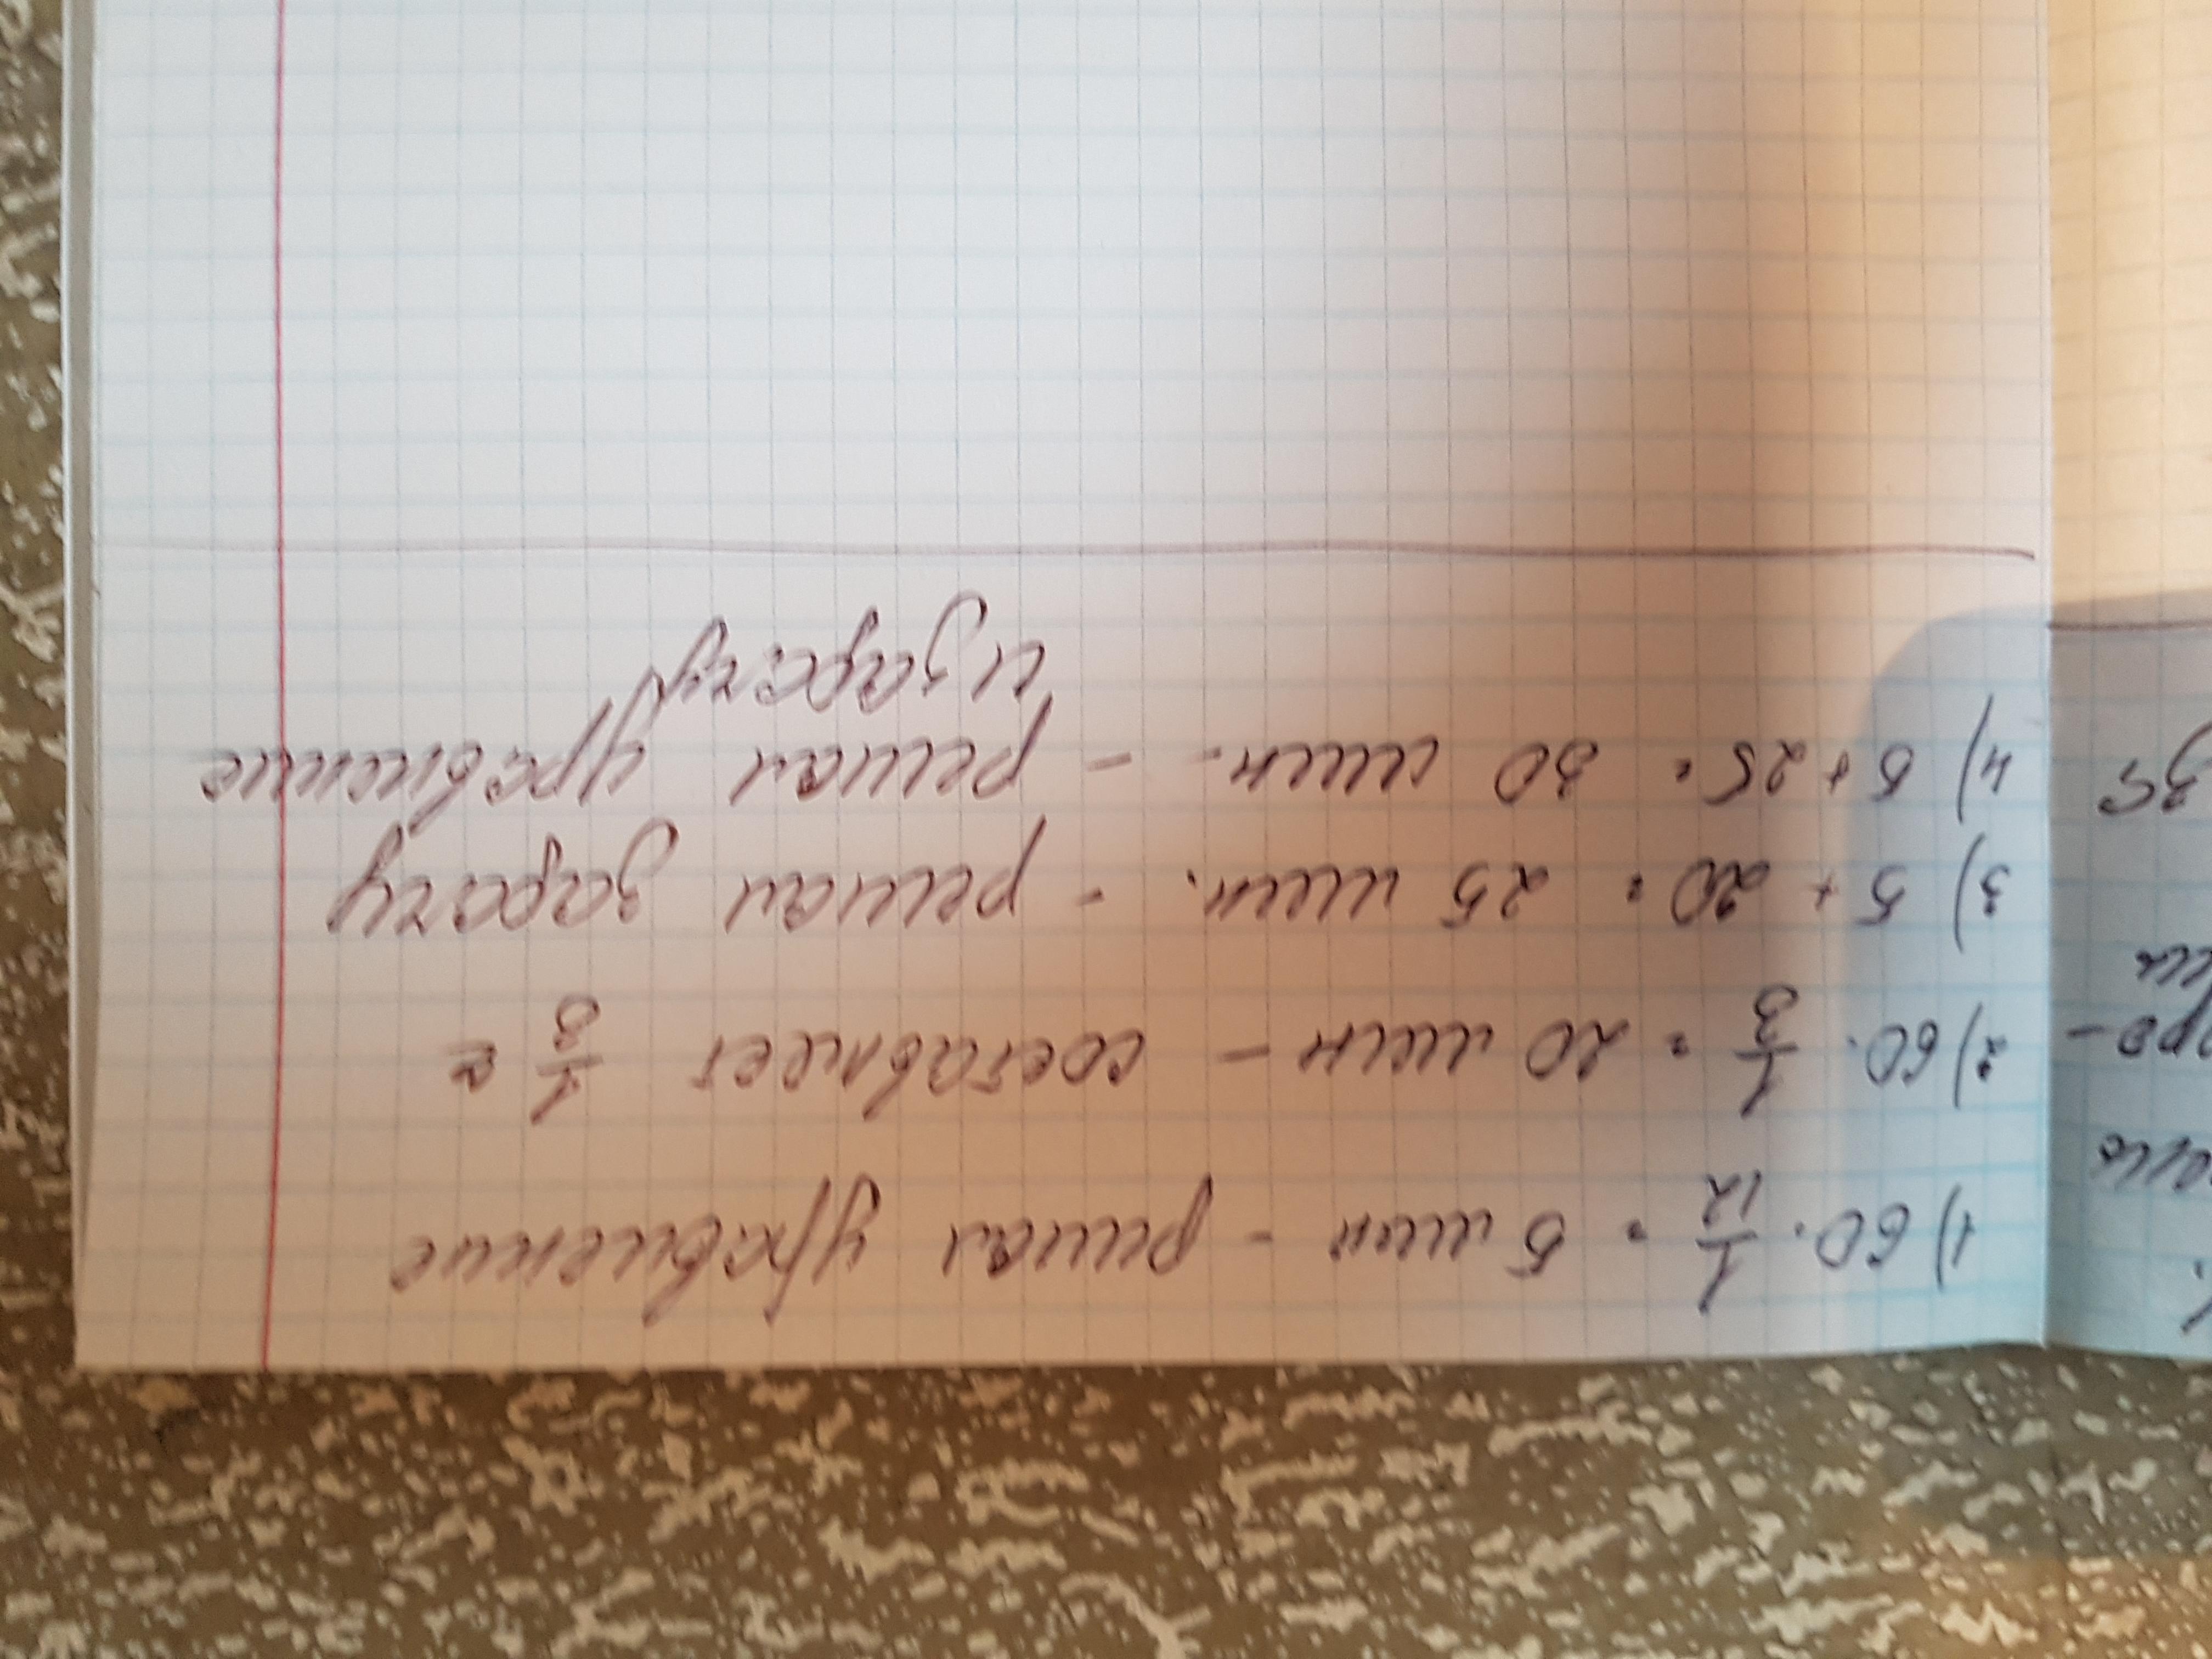 1) 60 · 1/12 = 5 мин - решал уравнение
2) 60 · 1/3 = 20 мин - составляет 1/3 ч
3) 5 + 20 = 25 мин. - решал задачу
4) 5 + 25 = 30 мин. - решал уравнение
и задачу